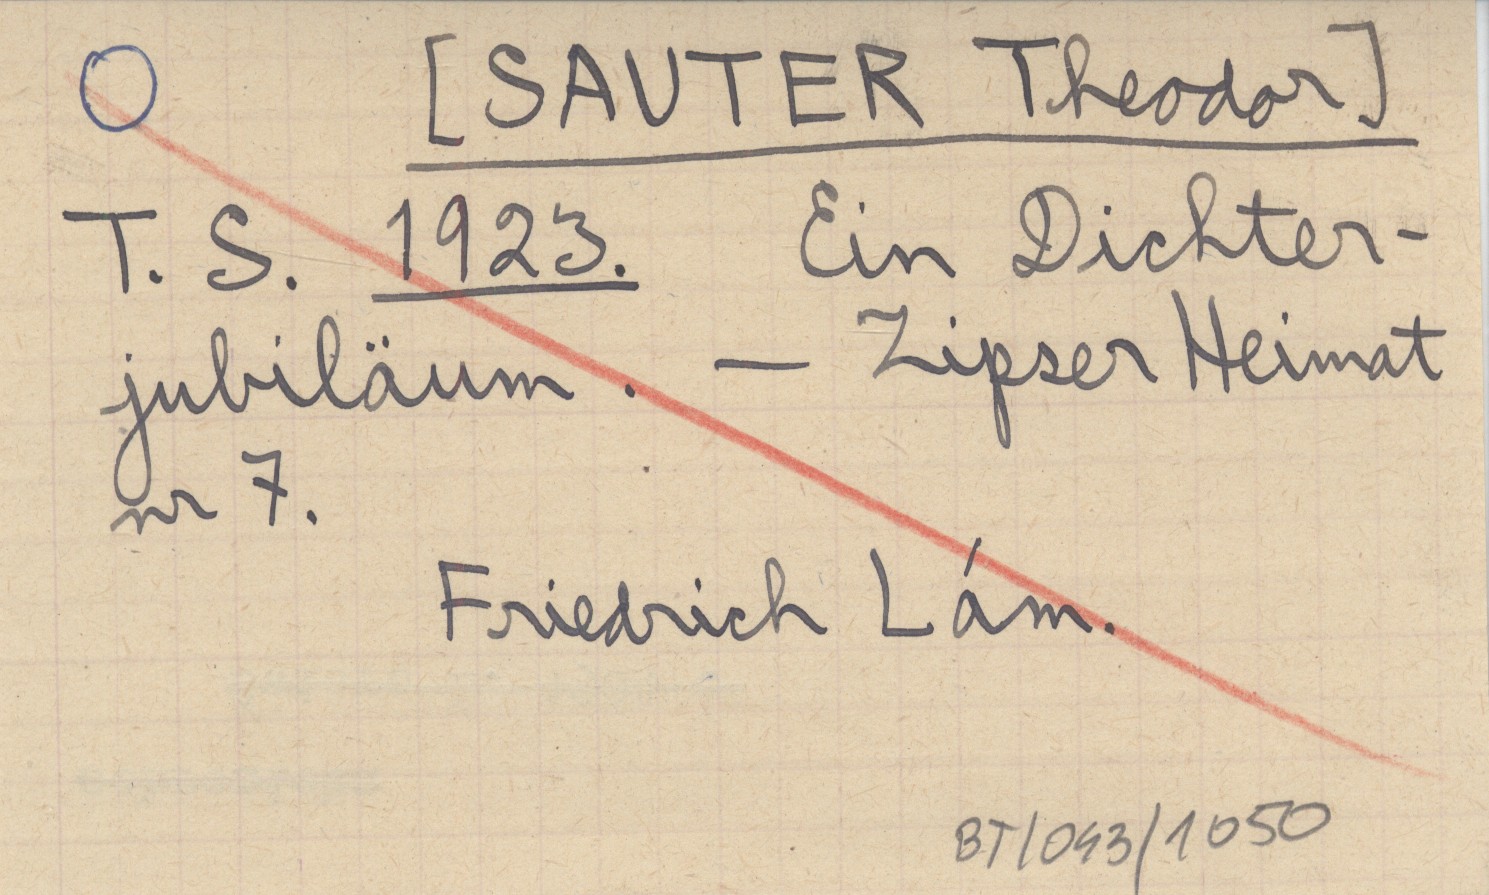 [SAUTER Theodor]
T. S. 1923. Ein Dichter-
jubiläum. — Zipser Heimat
nr 7.
Friedrich Lám.
BT/043/1050